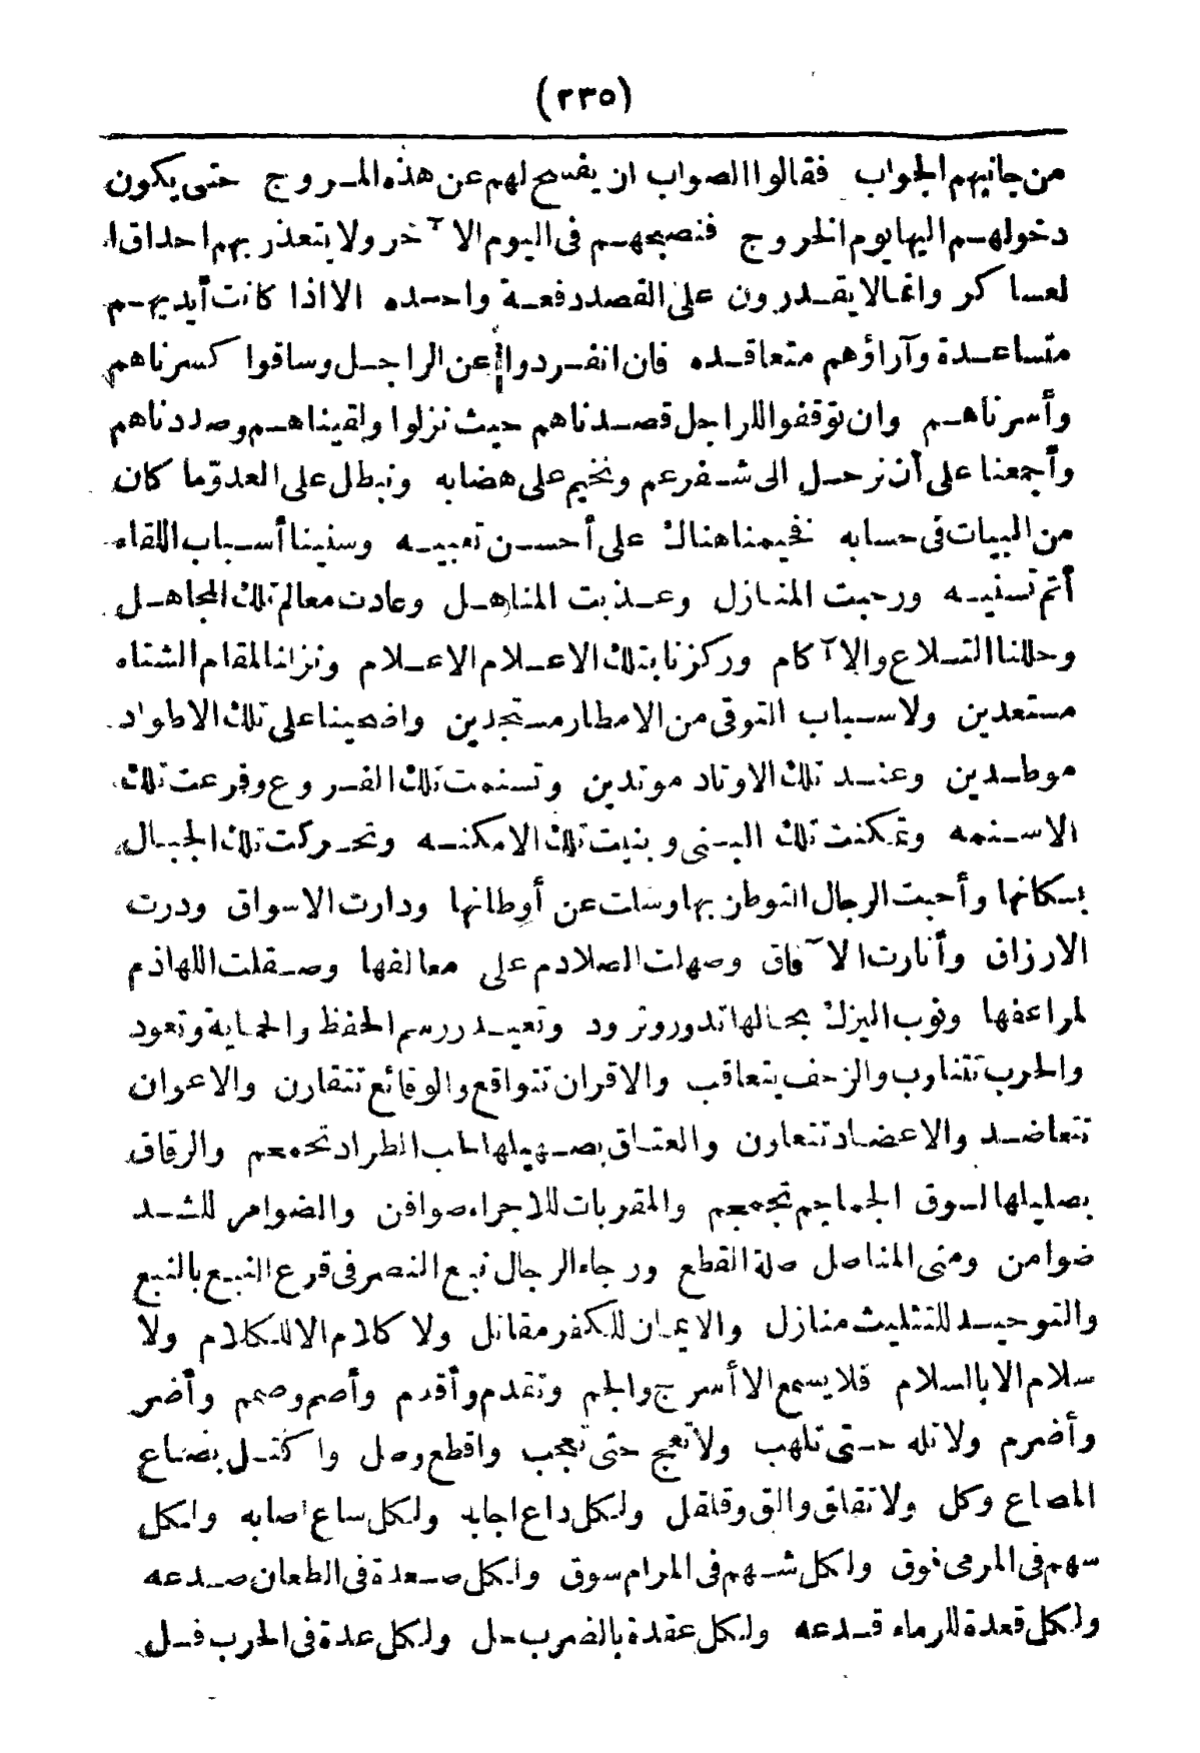 (٢٣٥)
من جانبهم الجواب فقالوا الصواب ان يفسح لهم عن هذه المروج حتى يكون
دخولهم اليها يوم الخروج فنصبحهم فى اليوم الآخر ولا يتعذر بهم احداق ا
لعساكر وانما لا يقدرون على القصد دفعة واحده الا اذا كانت أيديهم
متساعدة وآراؤهم متعاقده فان انفردوا عن الراجل وساقوا كسرناهم
وأسرناهم وان توقفوا للراجل قصدناهم حيث نزلوا ولقيناهم وصددناهم
وأجمعنا على أن نرحل الى شفرعم ونخيم على هضابه ونبطل على العدوّ ما كان
من البيات فى حسابه فخيمنا هناك على أحسن تعبيه وسنينا أسباب اللقاء
أتم تسنيه ورحبت المنازل وعذبت المناهل وعادت معالم تلك المجاهل
وحللنا التلاع والآكام وركزنا بتلك الاعلام الاعلام ونزلنا لمقام الشتاء
مستعدين ولاسباب التوقى من الامطار مستجدين واضحينا على تلك الاطواد
موطدين وعند تلك الاوتاد موتدين وتسنمت تلك الفروع وفرعت تلك
الاسنمه وتمكنت تلك البنى وبنيت تلك الامكنه وتحركت تلك الجبال
بسكانها وأحبت الرجال التوطن بها وسلت عن أوطانها ودارت الاسواق ودرت
الارزاق وأنارت الآفاق وصهلت الصلادم على معالفها وصقلت اللهاذم
لمراعفها ونوب اليزك بحالها تدور وترود وتعيد رسم الحفظ والحماية وتعود
والحرب تتناوب والزحف يتعاقب والاقران تتواقع والوقائع تتقارن والاعوان
تتعاضد والاعضاد تتعاون والعتاق بصهيلها لحب الطراد تحمحم والرقاق
بصليلها لسوق الجماجم تجمجم والمقربات للاجراء صوافن والضوامر للشد
ضوامن ومنى المناصل صلة القطع ورجاء الرجال نبع النصر فى قرع النبع بالنبع
والتوحيد للتثليث منازل والايمان للكفر مقاتل ولا كلام الا للكلام ولا
سلام الا بالسلام فلا يسمع الا أسرج وألجم وتقدم وأقدم وأصم وصمم وأضر
وأضرم ولا تله حتى تلهب ولا تعج حتى تعجب واقطع وصل واكتل بصاع
المصاع وكل ولا تقلق والق وقلقل ولكل داع اجابه ولكل ساع اصابه ولكل
سهم فى المرمى فوق ولكل شهم فى المرام سوق ولكل صعدة فى الطعان صدعه
ولكل قعدة للرماء قدعه ولكل عقدة بالضرب حل ولكل عدة فى الحرب فل